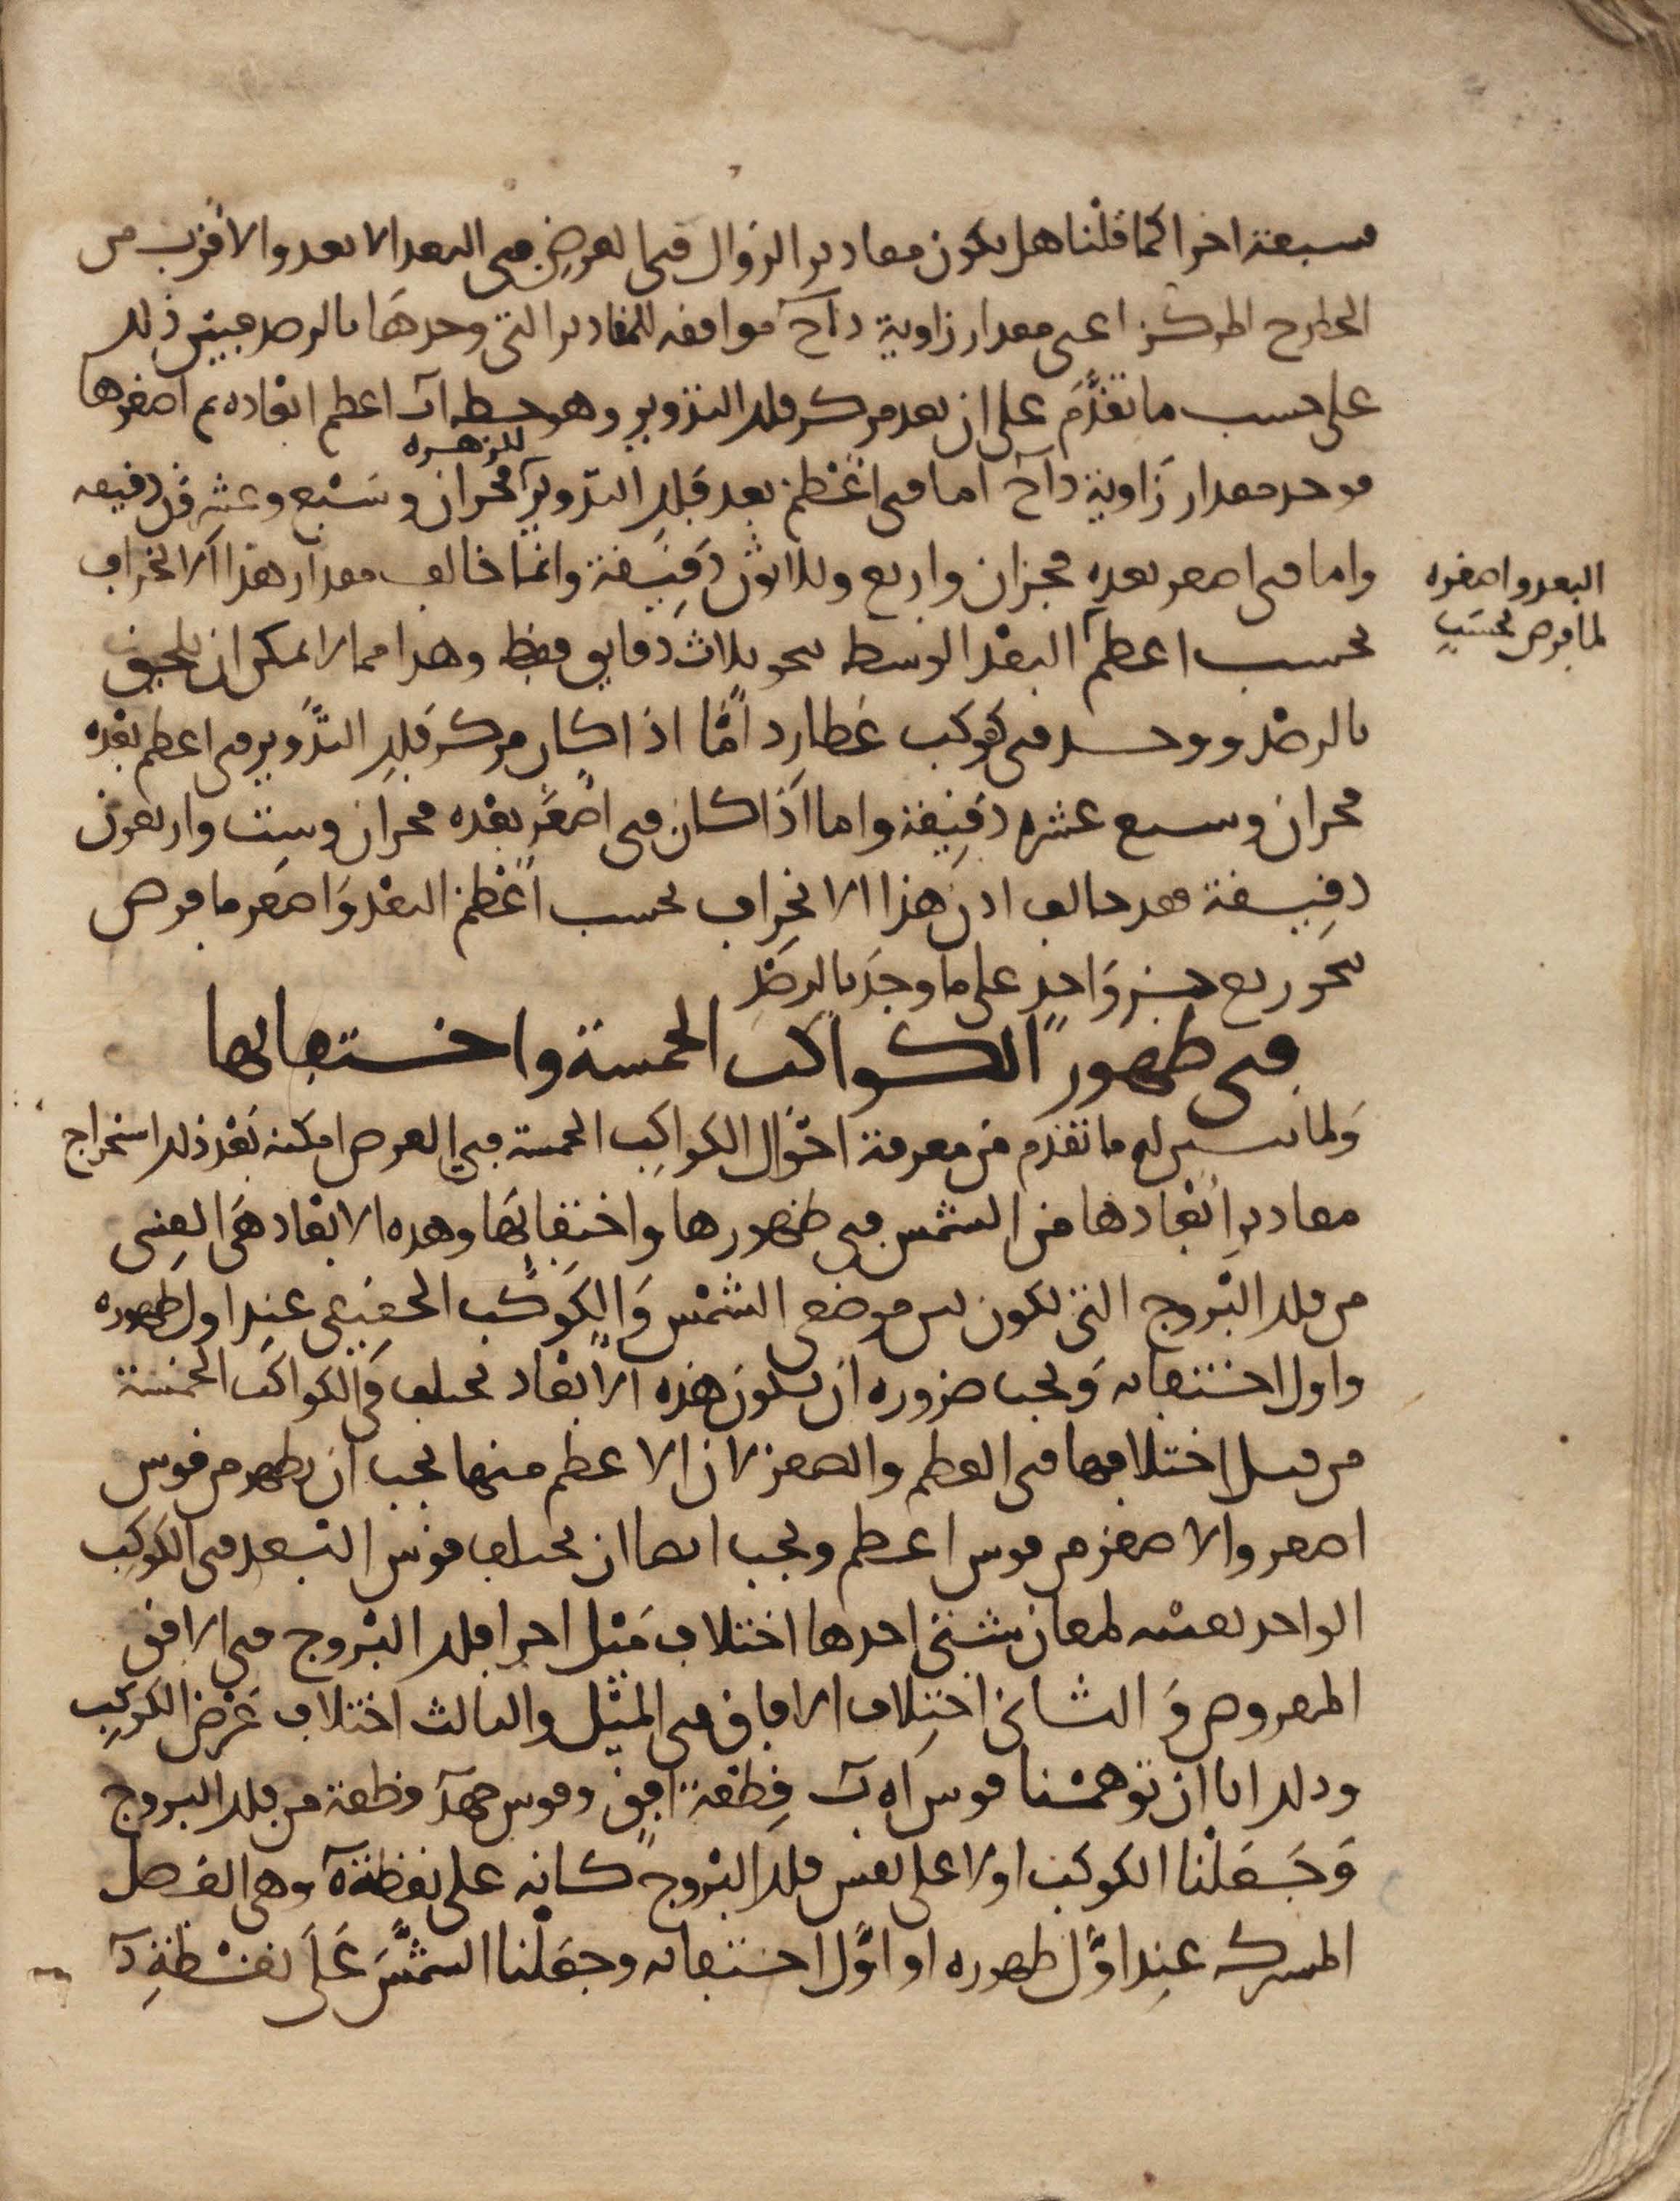 سبعة اخرا كما قلنا هل يكون مقادير الزوال فيما يعرض في البعد الابعد والاقرب من
الخارج المركز اعني مقدار زاوية داح موافقه للمقادير التي وجدها بالرصد فبين ذلك
على حسب ما تقدم على ان بعد مركز فلك التدوير وهو خط اب اعظم ابعاده ثم اصغرها
فوجد مقدار زاوية داح اما في اعظم بعد فلك التدوير للزهره فجزان وسبع وعشرون دقيقه
واما في اصغر بعده فجزان واربع وثلاثون دقيقة وانما خالف مقدار هذا الانحراف
بحسب اعظم البعد الوسط نحو ثلاث دقايق فقط وهذا مما لا يمكن ان يلحق
البعد واصغره
لما فرض بحسب
بالرصد ووجد في كوكب عطارد اما اذا كان مركز فلك التدوير في اعظم بعده
فجزان وسبع عشره دقيقة واما اذا كان في اصغر بعده فجزان وست واربعون
دقيقة فقد خالف اذن هذا الانحراف بحسب اعظم البعد واصغر ما فرض
نحو ربع جزو واحد على ما وجد بالرصد
في ظهور الكواكب الخمسة واختفائها
ولما تبين له ما تقدم من معرفة احوال الكواكب الخمسة في العرض امكنه بعد ذلك استخراج
مقادير ابعادها من الشمس في ظهورها واختفائها وهذه الابعاد هي القسي
من فلك البروج التي تكون بين موضعي الشمس والكوكب الحقيقي عند اول ظهوره
واول اختفائه ويجب ضروره ان تكون هذه الابعاد تختلف في الكواكب الخمسة
من قبل اختلافها في العظم والصغر لان الاعظم منها يجب ان يظهر من قوس
اصغر والاصغر من قوس اعظم ويجب ايضا ان تختلف قوس البعد في الكوكب
الواحد بعينه لمعان شتى احدها اختلاف ميل اجزا فلك البروج في الافق
المفروض والثاني اختلاف الافاق في الميل والثالث اختلاف عرض الكوكب
وذلك انا ان توهمنا قوس اه ب قطعة افق وقوس جهد قطعة من فلك البروج
وجعلنا الكوكب اولا على نفس فلك البروج كانه على نقطة ه وهي الفصل
المشترك عند اول ظهوره او اول اختفائه وجعلنا الشمس على نقطة د